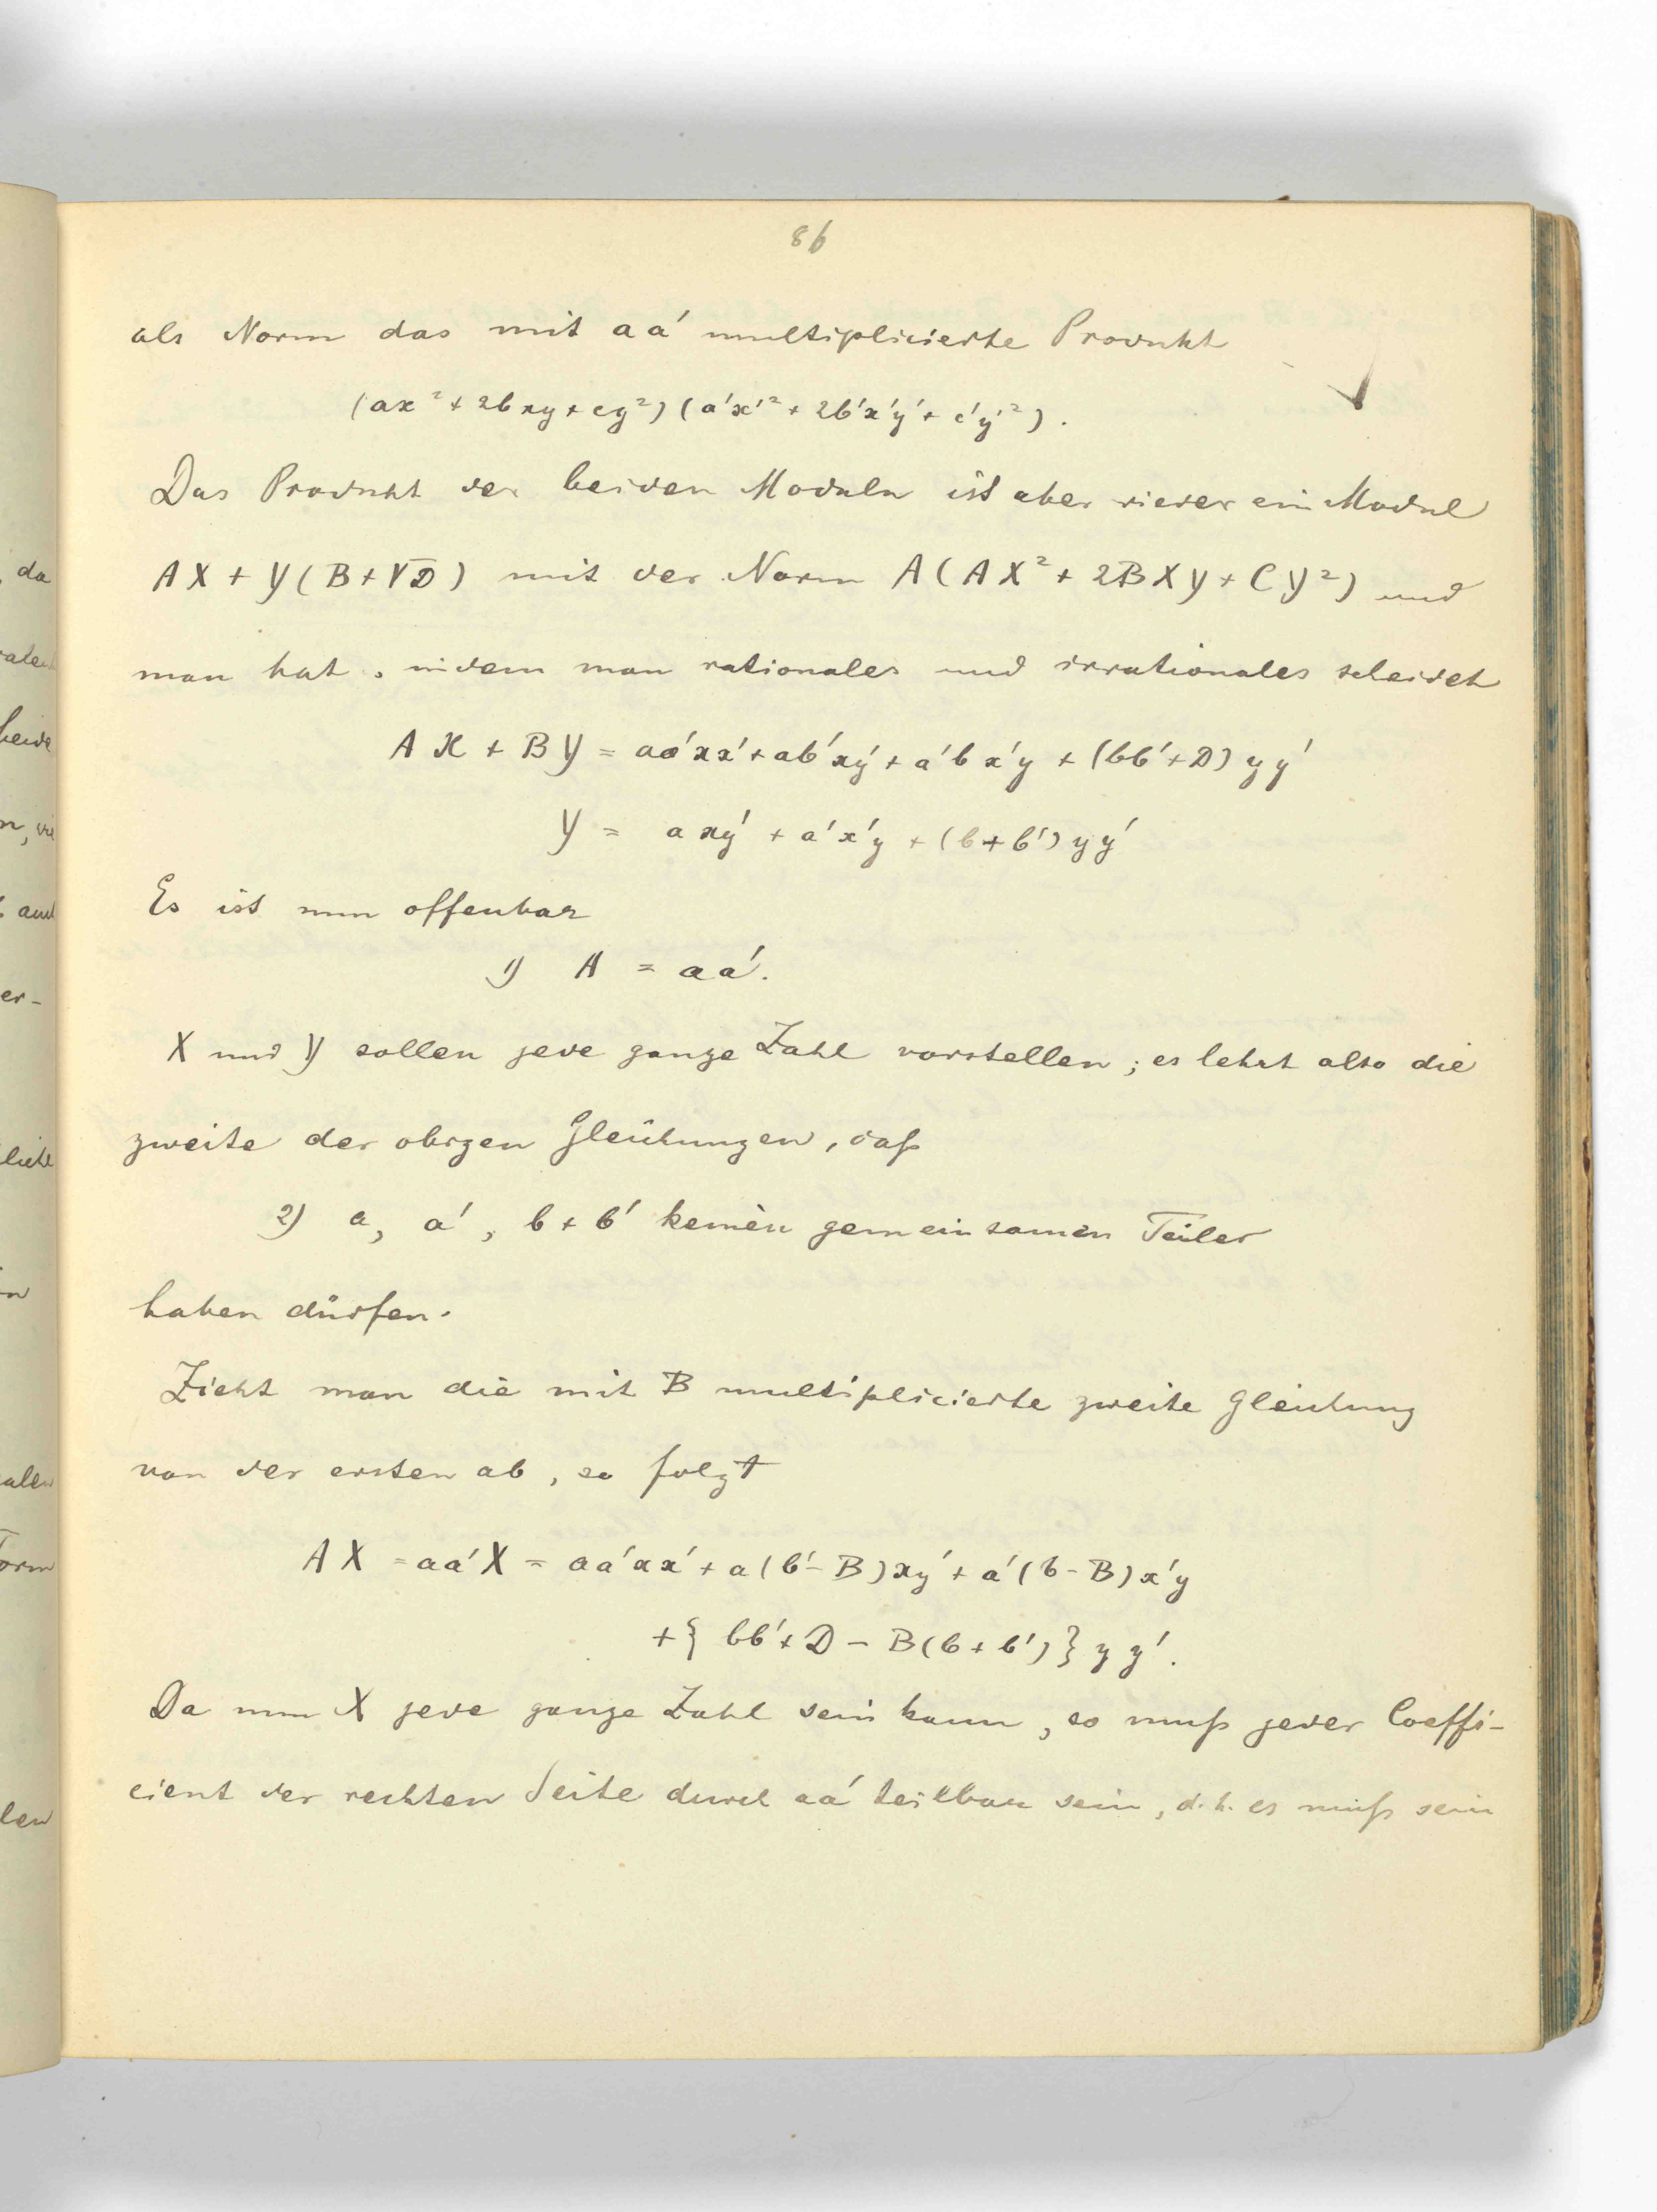 86
als Norm das mit aa' multiplicierte Produkt
(ax² + 2bxy + cy²) (a'x'² + 2b'x'y' + c'y'²).
Das Produkt der beiden Moduln ist aber wieder ein Modul
AX + Y(B + √D) mit der Norm A(AX² + 2BXY + CY²) und
man hat, indem man rationales und irrationales scheidet
AX + BY = aa'xx' + ab'xy' + a'bx'y + (bb' + D) yy'
Y = axy' + a'x'y + (b + b') yy'
Es ist nun offenbar
1) A = aa'.
X und Y sollen jede ganze Zahl vorstellen; es lehrt also die
zweite der obigen Gleichungen, daß
2) a, a', b + b' keinen gemeinsamen Teiler
haben dürfen.
Zieht man die mit B multiplicierte zweite Gleichung
von der ersten ab, so folgt
AX = aa'X = aa'xx' + a(b' - B)xy' + a'(b - B)x'y
+ { bb' + D - B(b + b') } yy'.
Da nun X jede ganze Zahl sein kann, so muß jeder Coeffi-
cient der rechten Seite durch aa' teilbar sein, d.h. es muß sein
da
beide
auch
er-
alen
len